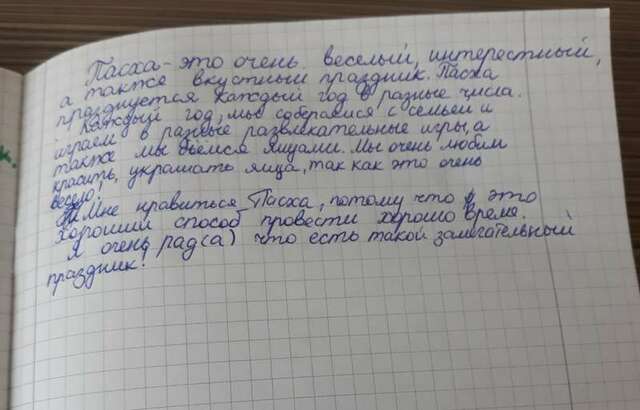 Пасха - это очень веселый, интерестный,
а также вкустный праздник. Пасха
празднуется каждый год в разные числа.
Каждый год, мы собераемся с семьей и
играем в разные развлекательные игры, а
также мы бьёмся яйцами. Мы очень любим
красить, украшать яйца, так как это очень
весело!
Мне нравиться Пасха, потому что это
хороший способ провести хорошо время.
Я очень рад(а) что есть такой замечательный
праздник!